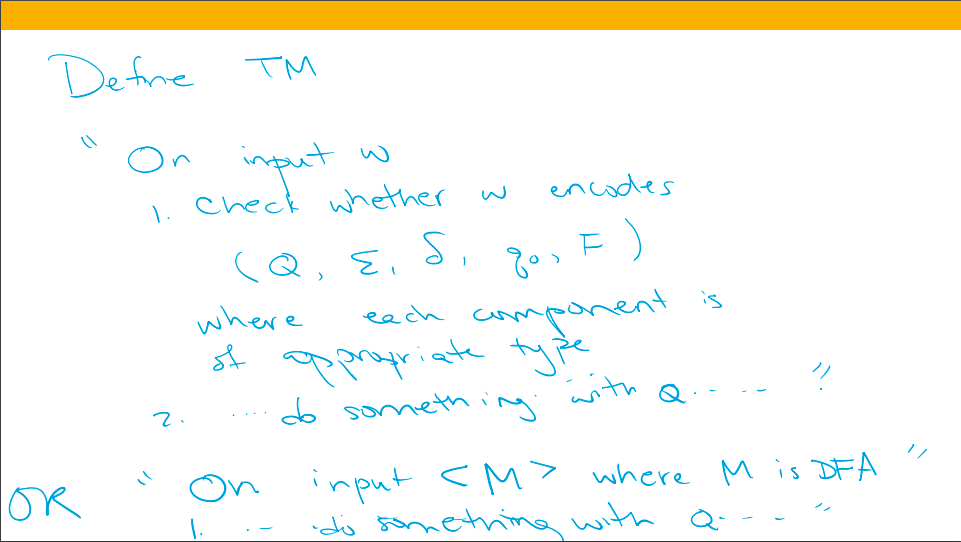 Define TM
" On input w
1. Check whether w encodes
(Q, Σ, δ, q₀, F)
where each component is
of appropriate type
2. .... do something with Q ..... "
OR " On input <M> where M is DFA "
1. ... do something with Q .... "